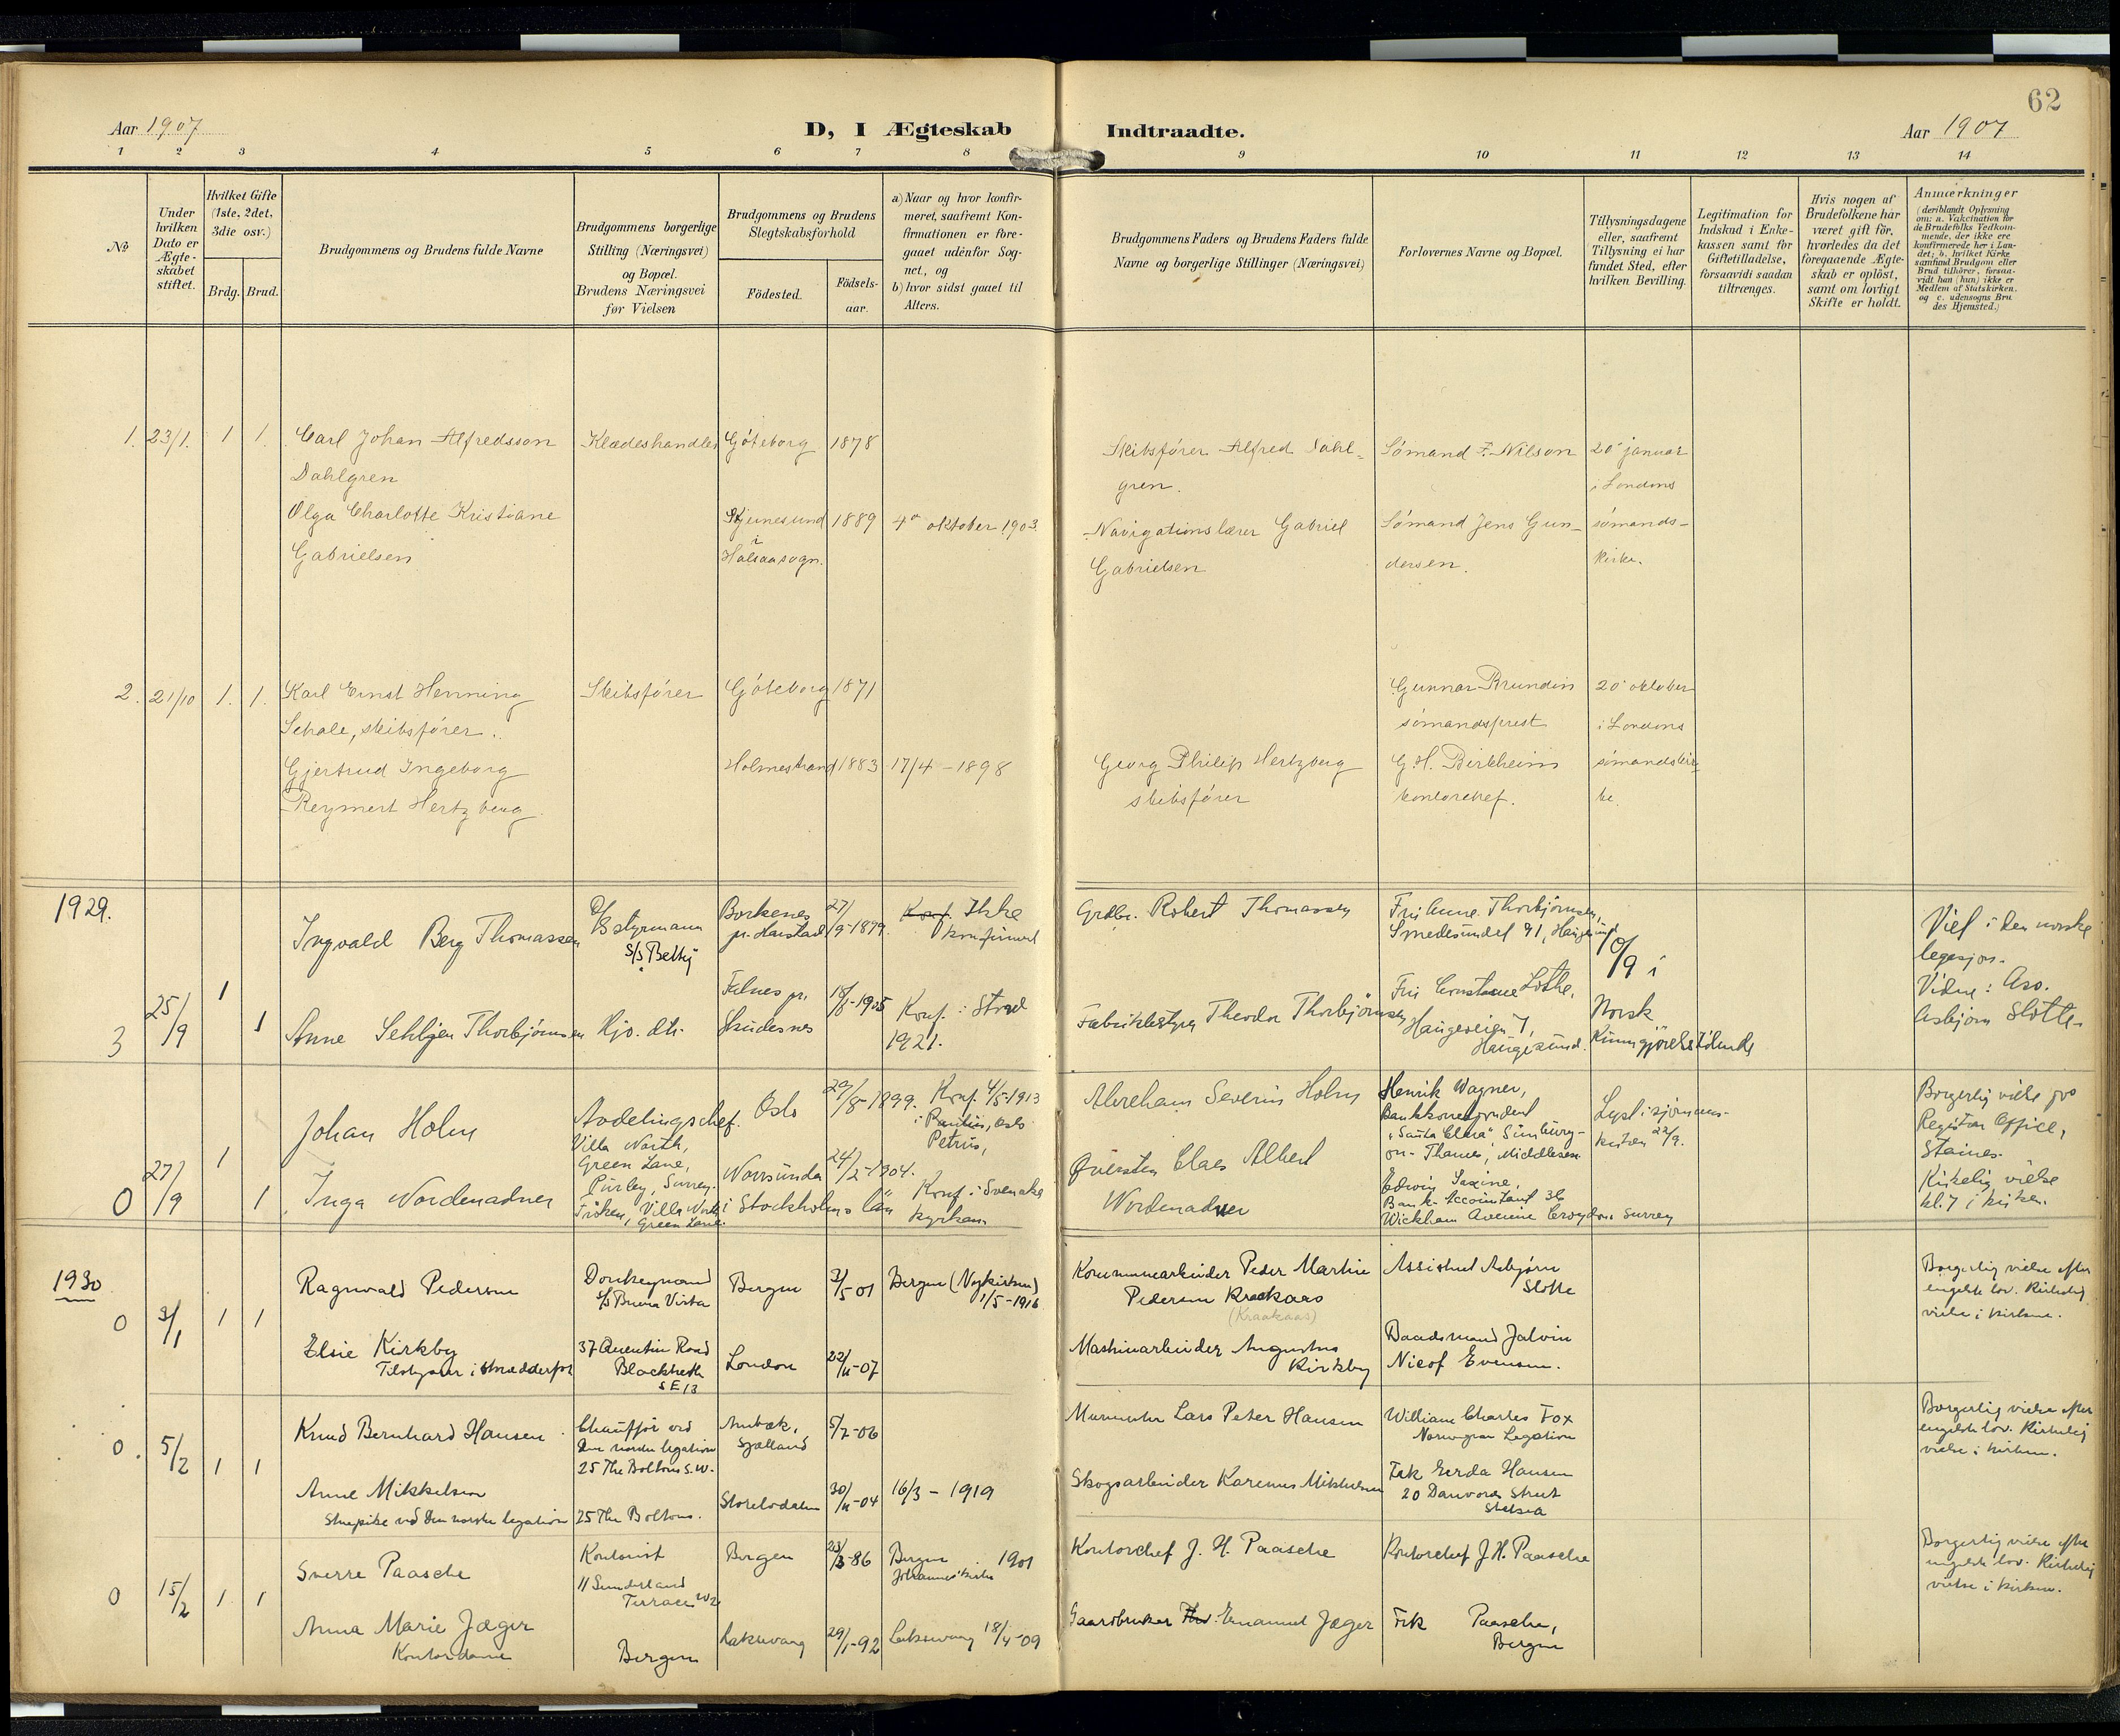 62
Aar 1907
D, I Ægteskab
Indtraadte.
Aar 1907
1 2 3 4 5 6 7 8 9 10 11 12 13 14
№
Under
hvilken
Dato er
Ægte-
skabet
stiftet.
Hvilket Gifte
(1ste, 2det,
3die osv.)
Brdg. Brud.
Brudgommens og Brudens fulde Navne
Brudgommens borgerlige
Stilling (Næringsvei)
og Bopæl.
Brudens Næringsvei
før Vielsen
Brudgommens og Brudens
Slegtskabsforhold
Födested.
Födsels-
aar.
a) Naar og hvor konfir-
meret, saafremt Kon-
firmationen er fore-
gaaet udenfor Sog-
net, og
b) hvor sidst gaaet til
Alters.
Brudgommens Faders og Brudens Faders fulde
Navne og borgerlige Stillinger (Næringsvei)
Forlovernes Navne og Bopæl.
Tillysningsdagene
eller, saafremt
Tillysning ei har
fundet Sted, efter
hvilken Bevilling.
Legitimation for
Indskud i Enke-
kassen samt for
Giftetilladelse,
forsaavidt saadan
tiltrænges.
Hvis nogen af
Brudefolkene har
været gift för,
hvorledes da det
foregaaende Ægte-
skab er oplöst,
samt om lovligt
Skifte er holdt.
Anmærkninger
(deriblandt Oplysning
om: a. Vakcination for
de Brudefolks Vedkom-
mende, der ikke ere
konfirmerede her i Lan-
det; b. hvilket Kirke
samfund Brudgom eller
Brud tilhører, forsaa-
vidt han (hun) ikke er
Medlem af Statskirken.
og c. udensogns Bru
des Hjemsted.)
1. 23/1. 1 1. Carl Johan Alfredsson Klædeshandler Göteborg 1878
Dahlgren
Olga Charlotte Kristiane 1889 4de oktober 1903
Gabrielsen
i
Halsaa sogn.
Skibsfører Alfred Dahl-
gren.
Navigationslærer Gabriel
Gabrielsen
Sømand F. Nilson
Sømand Jens Gun-
dersen.
20de januar
i Londons
sømands-
kirke.
2. 21/10 1. 1. Karl Ernst Henning Skibsfører Göteborg 1871
Schale, skibsfører.
Gjertrud Ingeborg Holmestrand 1883 17/4 - 1898
Reymert Hertzberg
Georg Philip Hertzberg
skibsfører
Gunnar Brundin
sømandsprest
G. H. Birkheim
kontorchef.
20de oktober
i Londons
sømandskir-
ke.
1929.
3 25/9 1 1
Ingvald Berg Thomassen
styrmann
S/S Betty
Borkenes
pr. Harstad
27/9-1879.
Konf. Ikke
konfirmert
Anne Thorbjørnsen
Hjo. dtr.
Falnes pr.
Skudesnes
18/8-1905
Konf. i
1921.
Grdbr. Robert Thomassen
Theodor Thorbjørnsen
Fru Anne Thorbjørnsen,
Smedesundet 91, Haugesund
Fru Lothe,
Haugeveien 7,
Haugesund.
10/9 i
Norsk
Kunngjørelsestidende
Viet i den norske
legasjon.
Vidne: Ass.
Asbjørn Slotte.
0 27/9 1 1
Johan Holm
Avdelingschef.
Villa North,
Green Lane,
Purley, Surrey.
Oslo
29/8-1899.
Konf. 4/5-1913
i Paulus, Oslo
Petrus,
Inga Nordenadner
Frøken, Villa North
Green Lane.
Norrsunda
i Stockholms län
24/2-1904.
Konf. i Svenska
kyrkan
Abraham Severin Holm
Claes Albert
Nordenadner
Henrik Wagner,
Bankkorrespondent
"Santa Clara", Sunbury-
on-Thames, Middlesex.
Edwin
Bank-Accountant 36
Wickham Avenue Croydon, Surrey
Lyst i sjømanns-
kirken 22/9.
Borgerlig vielse på
Register Office,
Staines.
Kirkelig vielse
kl. 7 i kirken.
1930
0 3/1 1 1
Ragnvald Pedersen
Donkeymand
S/S Buena Vista
Bergen
Bergen (Nykirken)
1/5-1916
Elsie Kirkby
37 Quentin Road
Blackheath
SE 13
London
22/11-07
Kommunearbeider Peder Martin
Pedersen Kraakaas
(Kraakaas)
Maskinarbeider Augustus
Kirkby
Assistent Asbjørn
Slotte
Baadsmand Jalvin
Evensen.
Borgerlig vielse efter
engelsk lov. Kirkelig
vielse i kirken.
0. 5/2 1 1
Knud Bernhard Hansen
Chauffør ved
Den norske legation
25 The Boltons S.W.
Sjælland
5/7-06
Anne Mikkelsen
Stuepike ved Den norske legation
25 The Boltons.
Storelvdalen
30/11-04
16/3 - 1919
Murmester Lars Peter Hansen
Skogsarbeider Karenus Mikkelsen
William Charles Fox
Norwegian Legation
Frk Gerda Hansen
20 Danvers Street
Chelsea
Borgerlig vielse efter
engelsk lov. Kirkelig
vielse i kirken.
0 15/2 1 1
Sverre Paasche
Kontorist
11 Sunderland
Terrace W2
Bergen
23/3-86
Bergen
Johanneskirke 1901
Anna Marie Jæger
Kontordame
Bergen
Laksevaag
29/1-92
Laksevaag 18/4-09
Kontorchef J. H. Paasche
Gaardbruker Emanuel Jæger
Kontorchef J. H. Paasche
Frk Paasche,
Bergen
Borgerlig vielse efter
engelsk lov. Kirkelig
vielse i kirken.